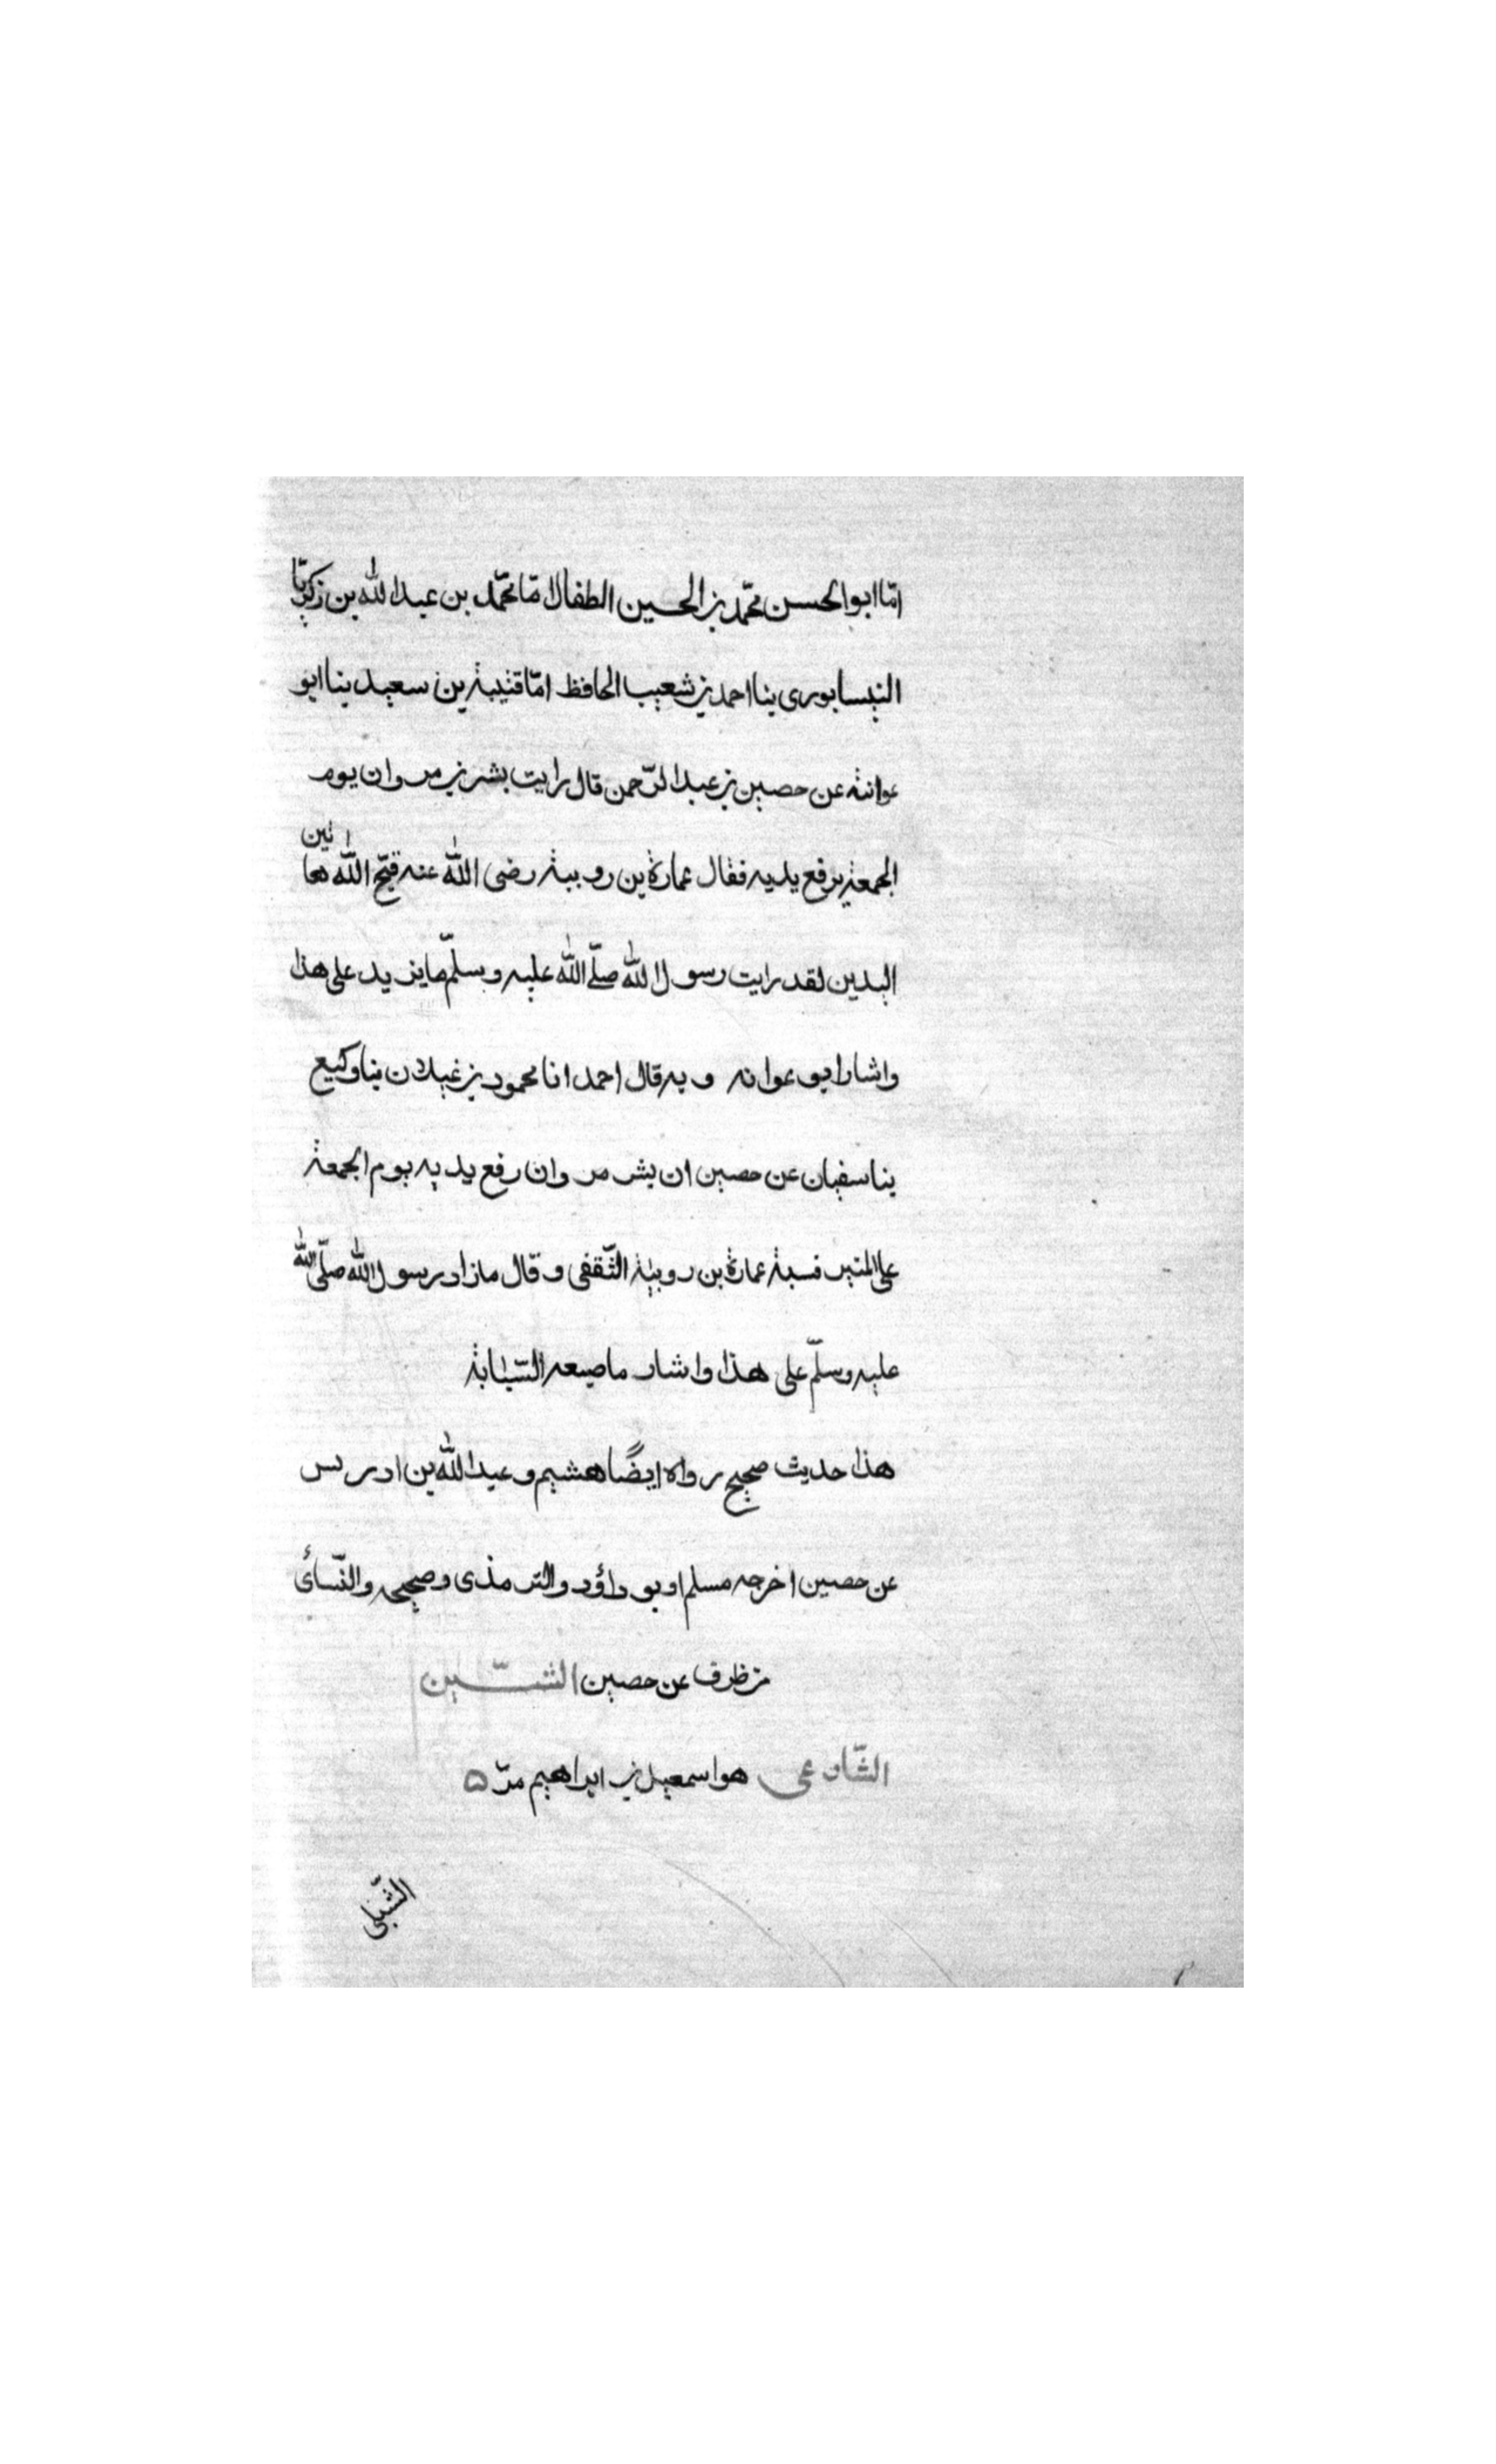 امّا ابو الحسن محمّد بن الحسين الطفال امّا محمّد بن عبد الله بن زكريّا
النيسابورى بنا احمد بن شعيب الحافظ امّا قتيبة بن سعيد بنا ابو
عوانة عن حصين بن عبد الرّحمن قال رايت بشر بن مروان يوم
الجمعة يرفع يديه فقال عمارة بن روبية رضى الله عنه قبّح الله هاتين
اليدين لقد رايت رسول الله صلّى الله عليه وسلّم ما يزيد على هذا
واشار ابو عوانه وبه قال احمد انا محمود بن غيلان بنا وكيع
بنا سفيان عن حصين ان بشر مروان رفع يديه يوم الجمعة
على المنبر فسبة عمارة بن روبية الثّقفى وقال ما زاد رسول الله صلّى الله
عليه وسلّم على هذا واشار ماصبعه السّبّابة
هذا حديث صحيح رواه ايضًا هشيم وعبد الله بن ادريس
عن حصين اخرجه مسلم اوبو داؤد والترمذى وصححه والنّسائ
من طرف عن حصين الشّين
الشّارعى هو اسمعيل بن ابراهيم مرّ ه
الشّبلى